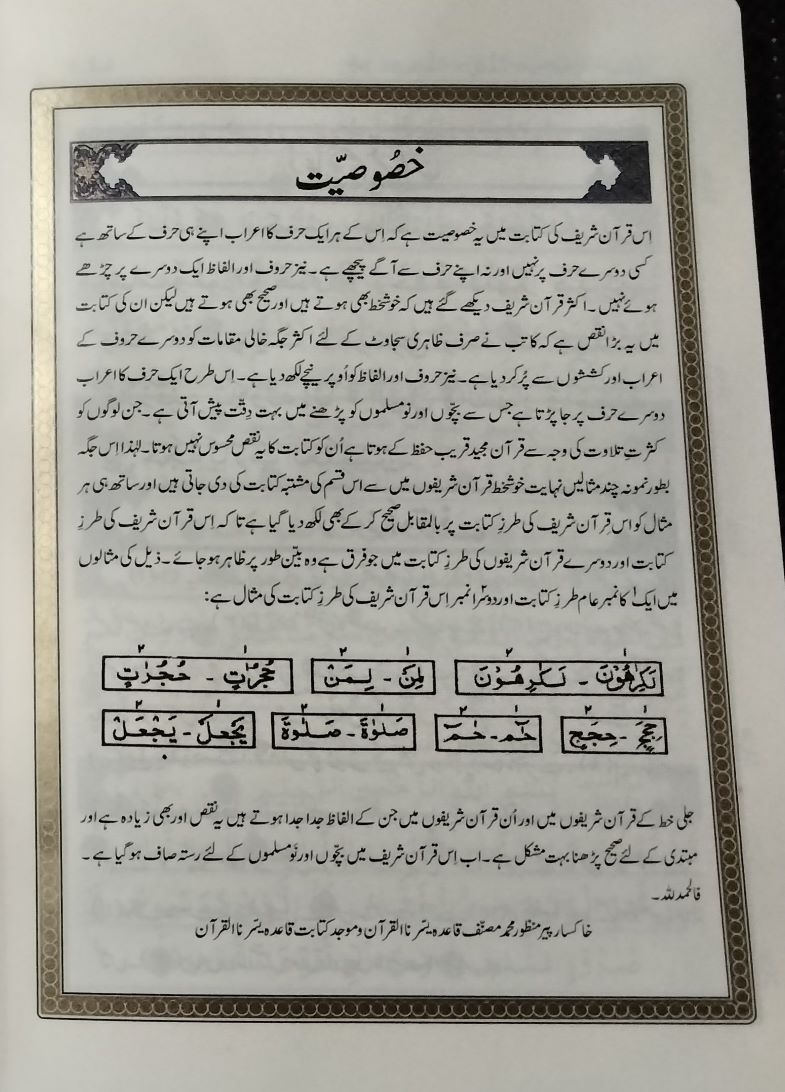 خصُوصیّت
اِس قرآن شریف کی کتابت میں یہ خصوصیت ہے کہ اِس کے ہر ایک حرف کا اعراب اپنے ہی حرف کے ساتھ ہے
کسی دوسرے حرف پر نہیں اور نہ اپنے حرف سے آگے پیچھے ہے۔ نیز حروف اور الفاظ ایک دوسرے پر چڑھے
ہوئے نہیں۔ اکثر قرآن شریف دیکھے گئے ہیں کہ خوشخط بھی ہوتے ہیں اور صحیح بھی ہوتے ہیں لیکن ان کی کتابت
میں یہ بڑا نقص ہے کہ کاتب نے صرف ظاہری سجاوٹ کے لئے اکثر جگہ خالی مقامات کو دوسرے حروف کے
اعراب اور کششوں سے پُر کر دیا ہے۔ نیز حروف اور الفاظ کو اُوپر نیچے لکھ دیا ہے۔ اِس طرح ایک حرف کا اعراب
دوسرے حرف پر جا پڑتا ہے جس سے بچّوں اور نو مسلموں کو پڑھنے میں بہت دِقّت پیش آتی ہے۔ جن لوگوں کو
کثرتِ تلاوت کی وجہ سے قرآن مجید قریب حفظ کے ہوتا ہے اُن کو کتابت کا یہ نقص محسوس نہیں ہوتا۔ لہٰذا اِس جگہ
بطور نمونہ چند مثالیں نہایت خوشخط قرآن شریفوں میں سے اس قسم کی مشتبہ کتابت کی دی جاتی ہیں اور ساتھ ہی ہر
مثال کو اس قرآن شریف کی طرزِ کتابت پر بالمقابل صحیح کر کے بھی لکھ دیا گیا ہے تا کہ اِس قرآن شریف کی طرزِ
کتابت اور دوسرے قرآن شریفوں کی طرزِ کتابت میں جو فرق ہے وہ بیّن طور پر ظاہر ہو جائے۔ ذیل کی مثالوں
میں ایک۱ کا نمبر عام طرزِ کتابت اور دوسرا۲ نمبر اِس قرآن شریف کی طرزِ کتابت کی مثال ہے:
۱ ۲ ۱ ۲ ۱ ۲
لَكٰرِهُوْنَ - لَكٰرِهُوْنَ لِمَنْ - لِمَنْ حُجُرٰتٍ - حُجُرٰتٍ
۱ ۲ ۱ ۲ ۱ ۲ ۱ ۲
حِجَجٍ - حِجَجٍ حٰمٓ - حٰمٓ صَلٰوةً - صَلٰوةً يَجْعَلْ - يَجْعَلْ
جلی خط کے قرآن شریفوں میں اور اُن قرآن شریفوں میں جن کے الفاظ جدا جدا ہوتے ہیں یہ نقص اور بھی زیادہ ہے اور
مبتدی کے لئے صحیح پڑھنا بہت مشکل ہے۔ اب اِس قرآن شریف میں بچّوں اور نَو مسلموں کے لئے رستہ صاف ہو گیا ہے۔
فالحمدللہ۔
خاکسار پیر منظور محمد مصنّف قاعدہ یسّرنا القرآن و موجد کتابت قاعدہ یسّرنا القرآن